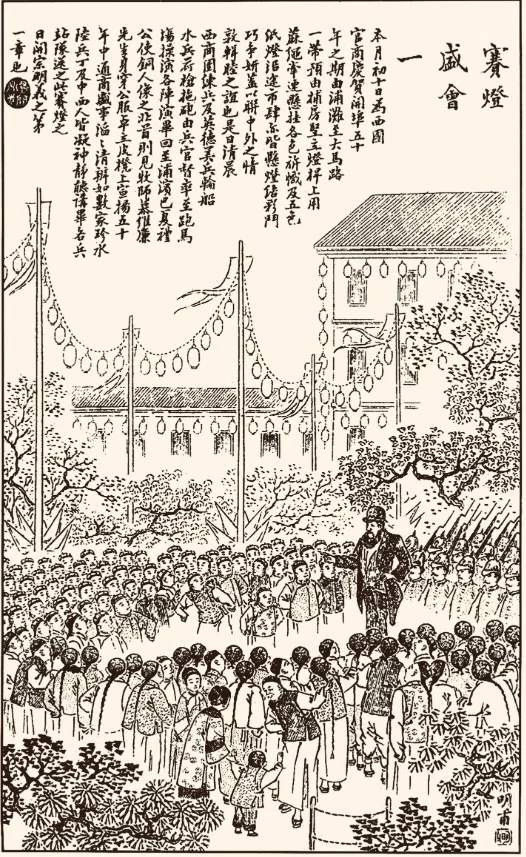 賽燈
盛會
一
本月初十日為西國
官商慶賀開埠五十
年之期由浦灘至大馬路
一帶預由捕房竪立燈桿上用
蔴繩牽連懸挂各色旂幟及五色
紙燈沿途市肆亦皆懸燈結彩鬥
巧爭妍蓋以聯中外之情
敦輯睦之誼也是日清晨
西商團練兵及英德美兵輪船
水兵荷鎗拖砲由兵官督率至跑馬
塲操演各陣演畢回至浦濱巴夏禮
公使銅人像之北首則見牧師慕維廉
先生身穿公服卓立皮櫈上宣揚五十
年中通商盛事滔滔清辨如數家珍水
陸兵丁及中西人皆凝神靜聽講畢各兵
站隊送之此賽燈之
日開宗明義之第
一章也
明甫